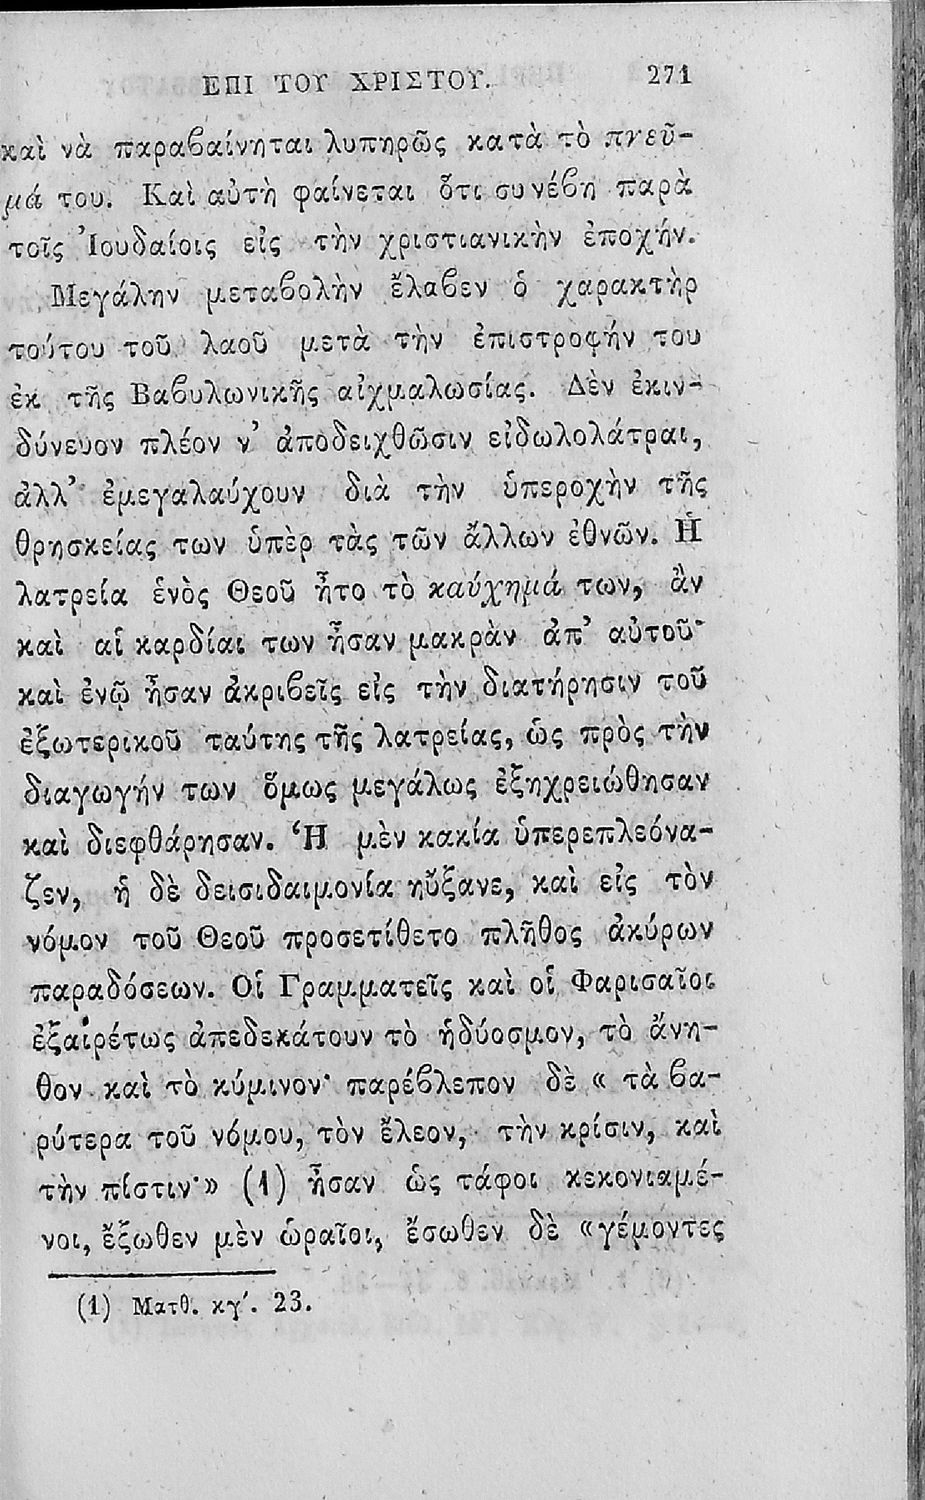 ΕΠΙ ΤΟΥ ΧΡΙΣΤΟΥ. 271
καὶ νὰ παραβαίνηται λυπηρῶς κατὰ τὸ πνεῦ-
μά του. Καὶ αὐτὴ φαίνεται ὅτι συνέβη παρὰ
τοῖς Ἰουδαίοις εἰς τὴν χριστιανικὴν ἐποχήν.
Μεγάλην μεταβολὴν ἔλαβεν ὁ χαρακτὴρ
τούτου τοῦ λαοῦ μετὰ τὴν ἐπιστροφήν του
ἐκ τῆς Βαβυλωνικῆς αἰχμαλωσίας. Δὲν ἐκιν-
δύνευον πλέον ν’ ἀποδειχθῶσιν εἰδωλολάτραι,
ἀλλ’ ἐμεγαλαύχουν διὰ τὴν ὑπεροχὴν τῆς
θρησκείας των ὑπὲρ τὰς τῶν ἄλλων ἐθνῶν. Ἡ
λατρεία ἑνὸς Θεοῦ ἦτο τὸ καύχημά των, ἂν
καὶ αἱ καρδίαι των ἦσαν μακρὰν ἀπ’ αὐτοῦ·
καὶ ἐνῷ ἦσαν ἀκριβεῖς εἰς τὴν διατήρησιν τοῦ
ἐξωτερικοῦ ταύτης τῆς λατρείας, ὡς πρὸς τὴν
διαγωγήν των ὅμως μεγάλως ἐξηχρειώθησαν
καὶ διεφθάρησαν. Ἡ μὲν κακία ὑπερεπλεόνα-
ζεν, ἡ δὲ δεισιδαιμονία ηὔξανε, καὶ εἰς τὸν
νόμον τοῦ Θεοῦ προσετίθετο πλῆθος ἀκύρων
παραδόσεων. Οἱ Γραμματεῖς καὶ οἱ Φαρισαῖοι
ἐξαιρέτως ἀπεδεκάτουν τὸ ἡδύοσμον, τὸ ἄνη-
θον καὶ τὸ κύμινον· παρέβλεπον δὲ « τὰ βα-
ρύτερα τοῦ νόμου, τὸν ἔλεον, τὴν κρίσιν, καὶ
τὴν πίστιν·» (1) ἦσαν ὡς τάφοι κεκονιαμέ-
νοι, ἔξωθεν μὲν ὡραῖοι, ἔσωθεν δὲ «γέμοντες
(1) Ματθ. κγʹ. 23.